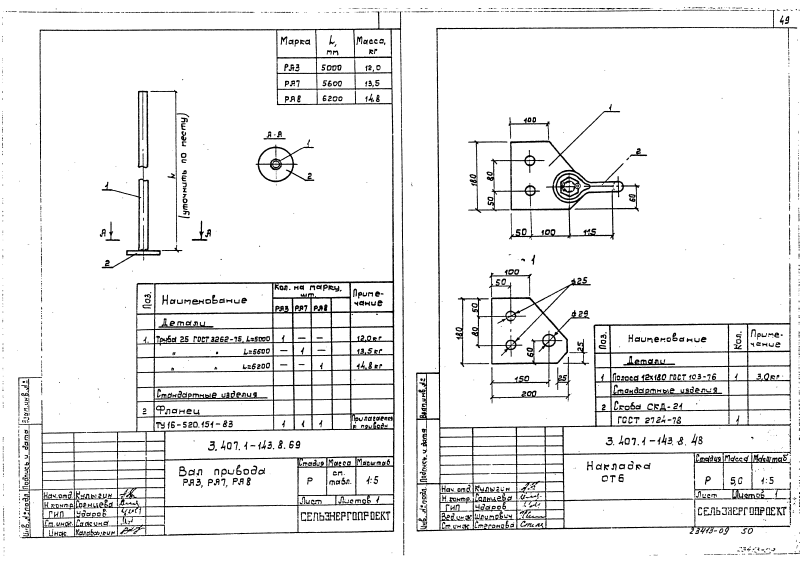 49
Марка L, мм Масса, кг
РЯ3 5000 12,0
РЯ7 5600 13,5
РЯ8 6200 14,8
А-А
1
2
L
(уточнить по месту)
1
А А
2
Поз. Наименование Кол. на марку, шт. Приме-чание
РЯ3 РЯ7 РЯ8
Детали
1. Труба 25 ГОСТ 3262-75, L=5000 1 — — 12,0кг
" " L=5600 — 1 — 13,5кг
" " L=6200 — — 1 14,8кг
Стандартные изделия
2 Фланец
ТУ16-520.151-83 1 1 1 Прилагается к приводу
3.407.1-143.8.69
Вал привода
РЯ3, РЯ7, РЯ8
Стадия Масса Масштаб
Р см. табл. 1:5
Лист Листов 1
СЕЛЬЭНЕРГОПРОЕКТ
Нач.отд. Кулыгин
Н.контр. Солнцева
ГИП Ударов
Ст.инж.
Инж.
Взам.инв.№
Подпись и дата
Инв.№подл.
100
1
2
180
80
50
60
50 100 115
1
100
50
⌀25
⌀29
180
50
80
60
25
25
150
200
Поз. Наименование Кол. Приме-чание
Детали
1 Полоса 12х180 ГОСТ 103-76 1 3,0кг
Стандартные изделия
2 Скоба СКД-21
ГОСТ 2724-78 1
3.407.1-143.8.48
Накладка
ОТ6
Стадия Масса Масштаб
Р 5,0 1:5
Лист Листов 1
СЕЛЬЭНЕРГОПРОЕКТ
Нач.отд. Кулыгин
Н.контр. Солнцева
ГИП Ударов
Вед.инж.
Ст.инж.
Взам.инв.№
Подпись и дата
Инв.№подл.
23413-09 50